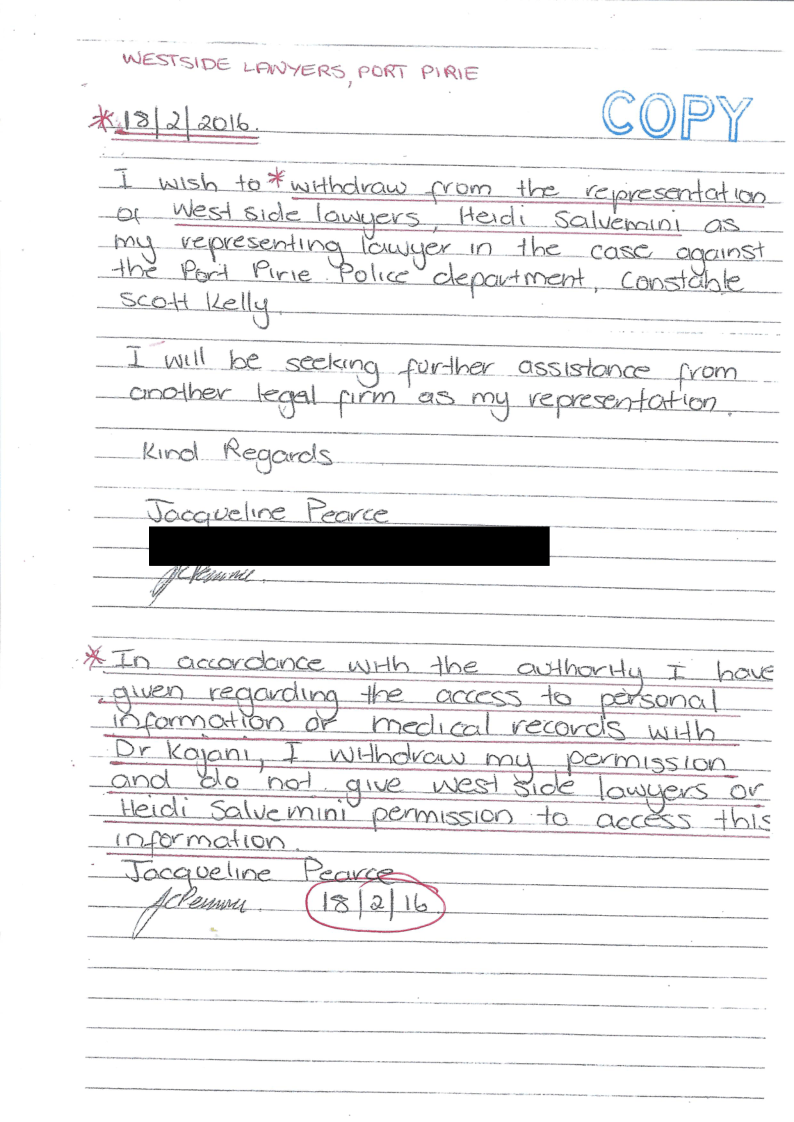 WESTSIDE LAWYERS, PORT PIRIE
COPY
*18/2/2016.
I wish to *withdraw from the representation
of West side lawyers, Heidi Salvemini as
my representing lawyer in the case against
the Port Pirie Police department, Constable
Scott Kelly.
I will be seeking further assistance from
another legal firm as my representation.
Kind Regards
Jacqueline Pearce
*In accordance with the authority I have
given regarding the access to personal
information or medical records with
Dr Kajani, I withdraw my permission
and do not give West side lawyers or
Heidi Salvemini permission to access this
information.
Jacqueline Pearce
JCPearce. 18/2/16